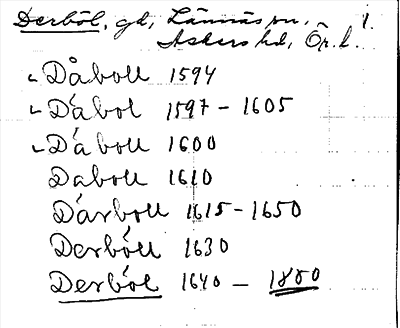 Derböl, gd, Lännäs sn, 1.
Askers hd, Ör. l.
Dåboll 1594
Dåbol 1597 - 1605
Dåboll 1600
Daboll 1610
Dårboll 1615-1650
Derböll 1630
Derböl 1640 - 1880